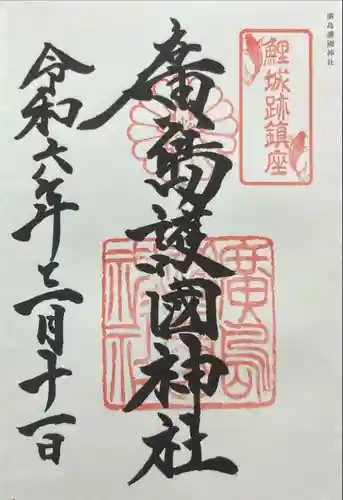 廣島護國神社
鯉城跡鎮座
廣島護國神社
廣島護國神社
令和六年十二月十一日